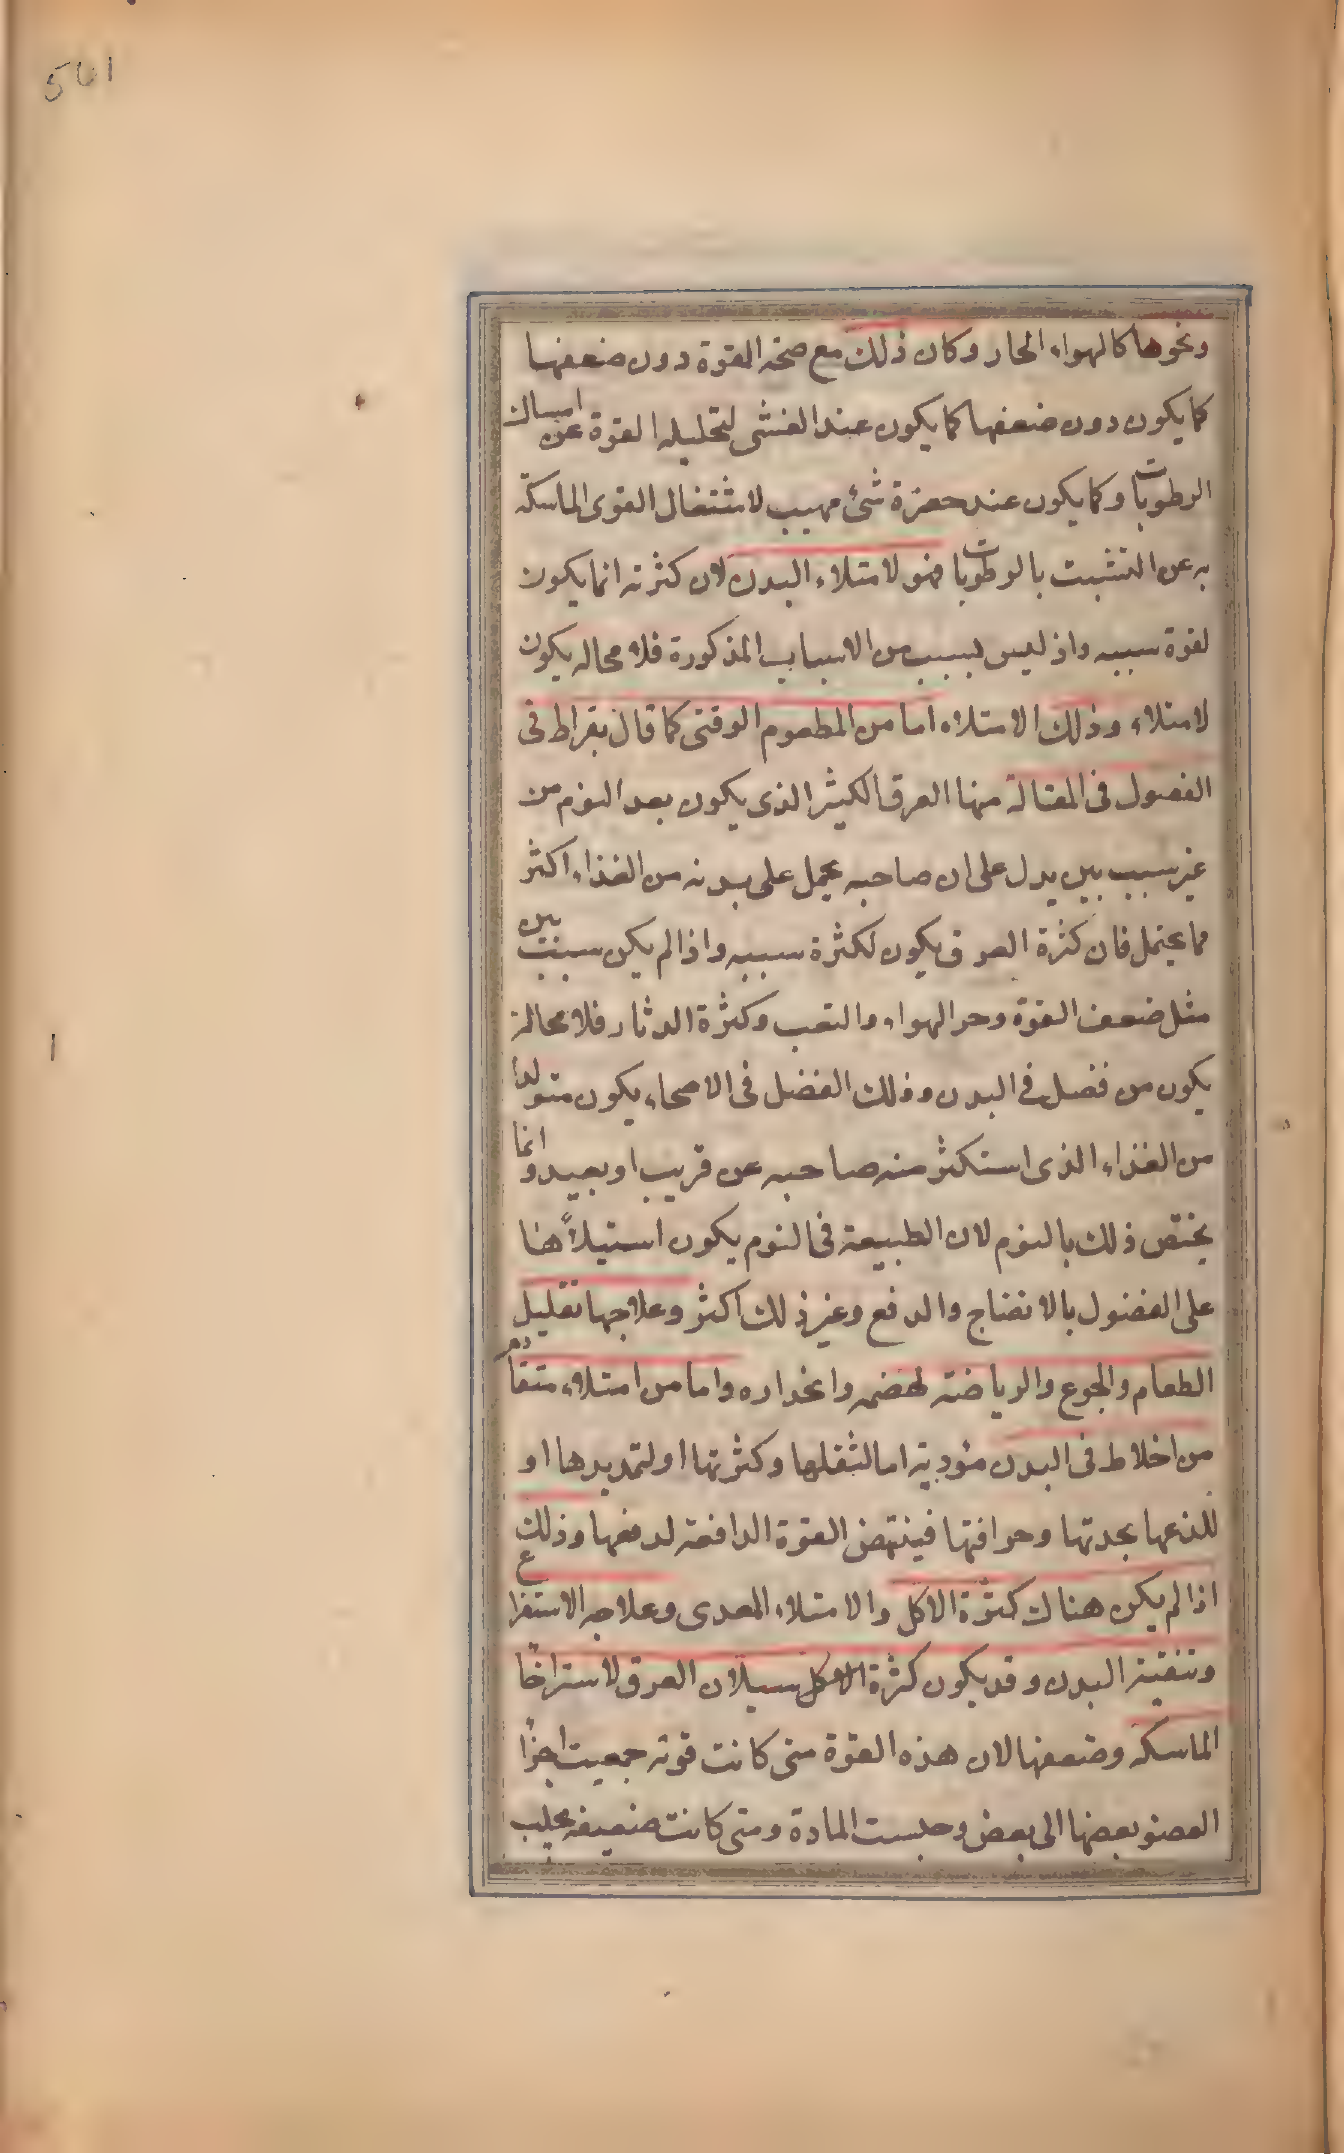 561
ونحوها كالهواء الحار وكان ذلك مع صحة القوة دون ضعفها
كما يكون دون ضعفها كما يكون عند الغشى لتحليله القوة عن امساك
الرطوبات وكما يكون عند حضرة شئ مهيب لاشتغال القوى الماسكة
به عن التشبث بالرطوبات فهو لامتلاء البدن لان كثرته انما يكون
لقوة سببه واذ ليس بسبب من الاسباب المذكورة فلا محاله يكون
لامتلاء وذلك الامتلاء اما من المطعوم الوقتى كما قال بقراط فى
الفصول فى المقالة منها العرق الكثير الذى يكون بعد النوم من
غير سبب بين يدل على ان صاحبه يحمل على بدنه من الغذاء اكثر
مما يحتمل فان كثرة العرق يكون لكثرة سببه واذا لم يكن سبب بين
مثل ضعف القوة وحر الهواء والتعب وكثرة الدثار فلا محالة
يكون من فضل فى البدن وذلك الفضل فى الاصحاء يكون متولدا
من الغذاء الذى استكثر منه صاحبه عن قريب او بعيد وانما
يختص ذلك بالنوم لان الطبيعة فى النوم يكون استيلاؤها
على الفضول بالانضاج والدفع وغير ذلك اكثر وعلاجها تقليل
الطعام والجوع والرياضة لهضمه وانحداره واما من امتلاء متقادم
من اخلاط فى البدن مؤدية اما لثقلها وكثرتها او لتمديدها او
للذعها بحدتها وحرافتها فينتهض القوة الدافعة لدفعها وذلك
اذا لم يكن هناك كثرة الاكل والامتلاء المعدى وعلاجه الاستفراغ
وتنقية البدن وقد يكون كثرة الاكل سيلان العرق لاسترخا
الماسكة وضعفها لان هذه القوة متى كانت قوته جمعيت اجزا
العضو بعضها الى بعض وحبست المادة ومتى كانت ضعيفة